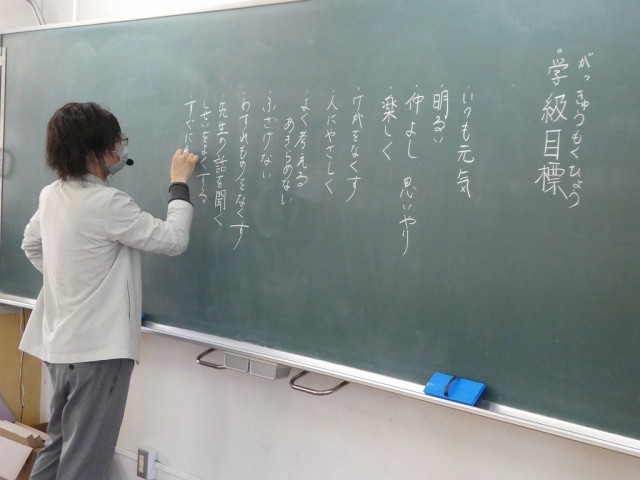 がっきゅうもくひょう
。学級目標
・いつも元気
・明るい
・仲よし 思いやり
・楽しく
・けがをなくす
・人にやさしく
・よく考える
あきらめない
・ふざけない
・わすれものをなくす
・先生の話を聞く
しせいをよくする
・すぐに